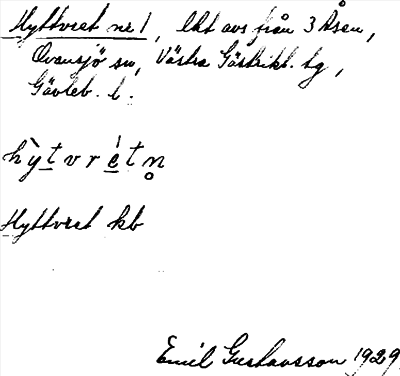 Hyttvret nr 1, lht avs från 3 Åsen,
Ovansjö sn, Västra Gästrikl. tg,
Gävleb. l.
hỳ̠t̠vre̠̍tn̥
Hyttvret kb
Emil Gustavsson 1929